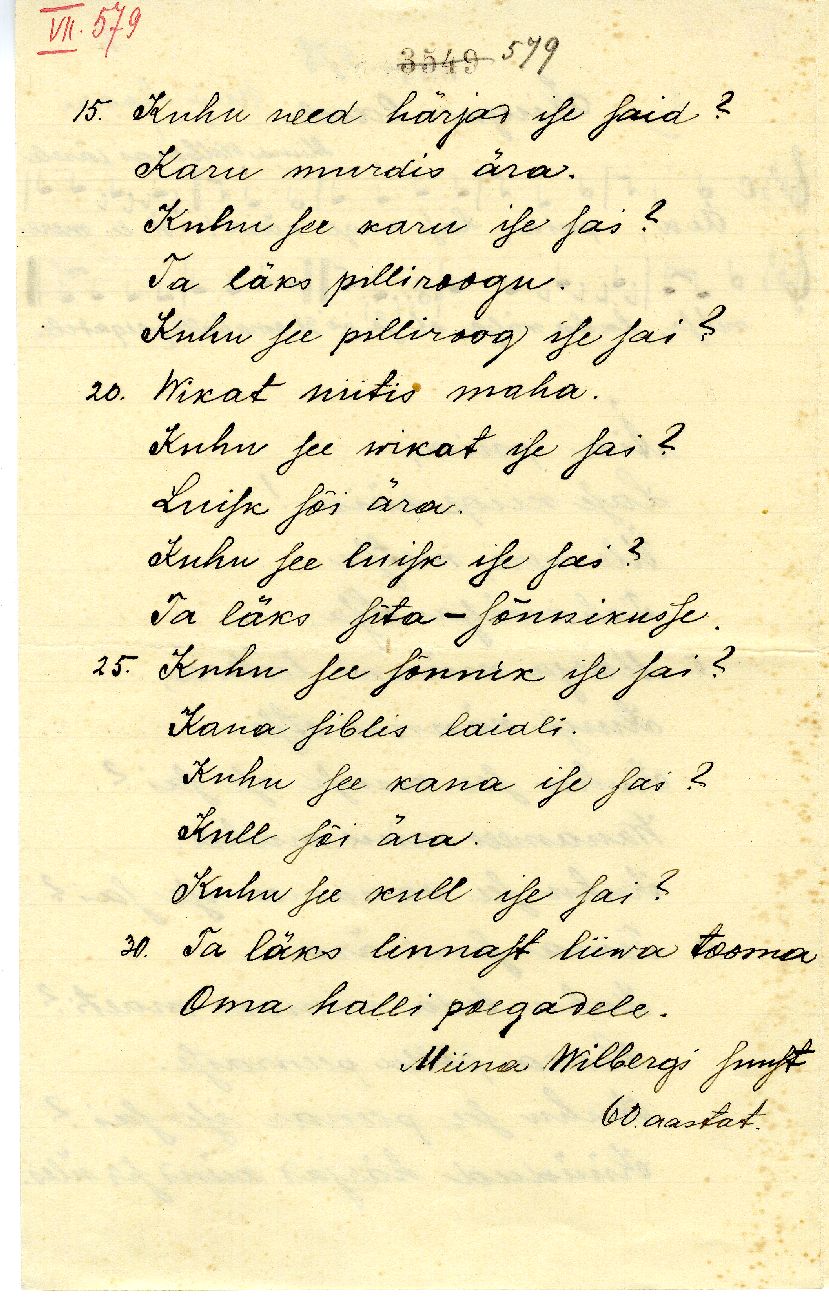 VII. 579
3549 579
15. Kuhu need härjad ise said?
Karu murdis ära.
Kuhu see karu ise sai?
Ta läks pilliroogu.
Kuhu see pilliroog ise sai?
20. Wikat niitis maha.
Kuhu see wikat ise sai?
Luisk sõi ära.
Kuhu see luisk ise sai?
Ta läks sita-sõnnikusse.
25. Kuhu see sõnnik ise sai?
Kana siblis laiali.
Kuhu see kana ise sai?
Kull sõi ära.
Kuhu see kull ise sai?
30. Ta läks linnast liiwa tooma
Oma halli poegadele.
Miina Wilbergi suust
60 aastat.